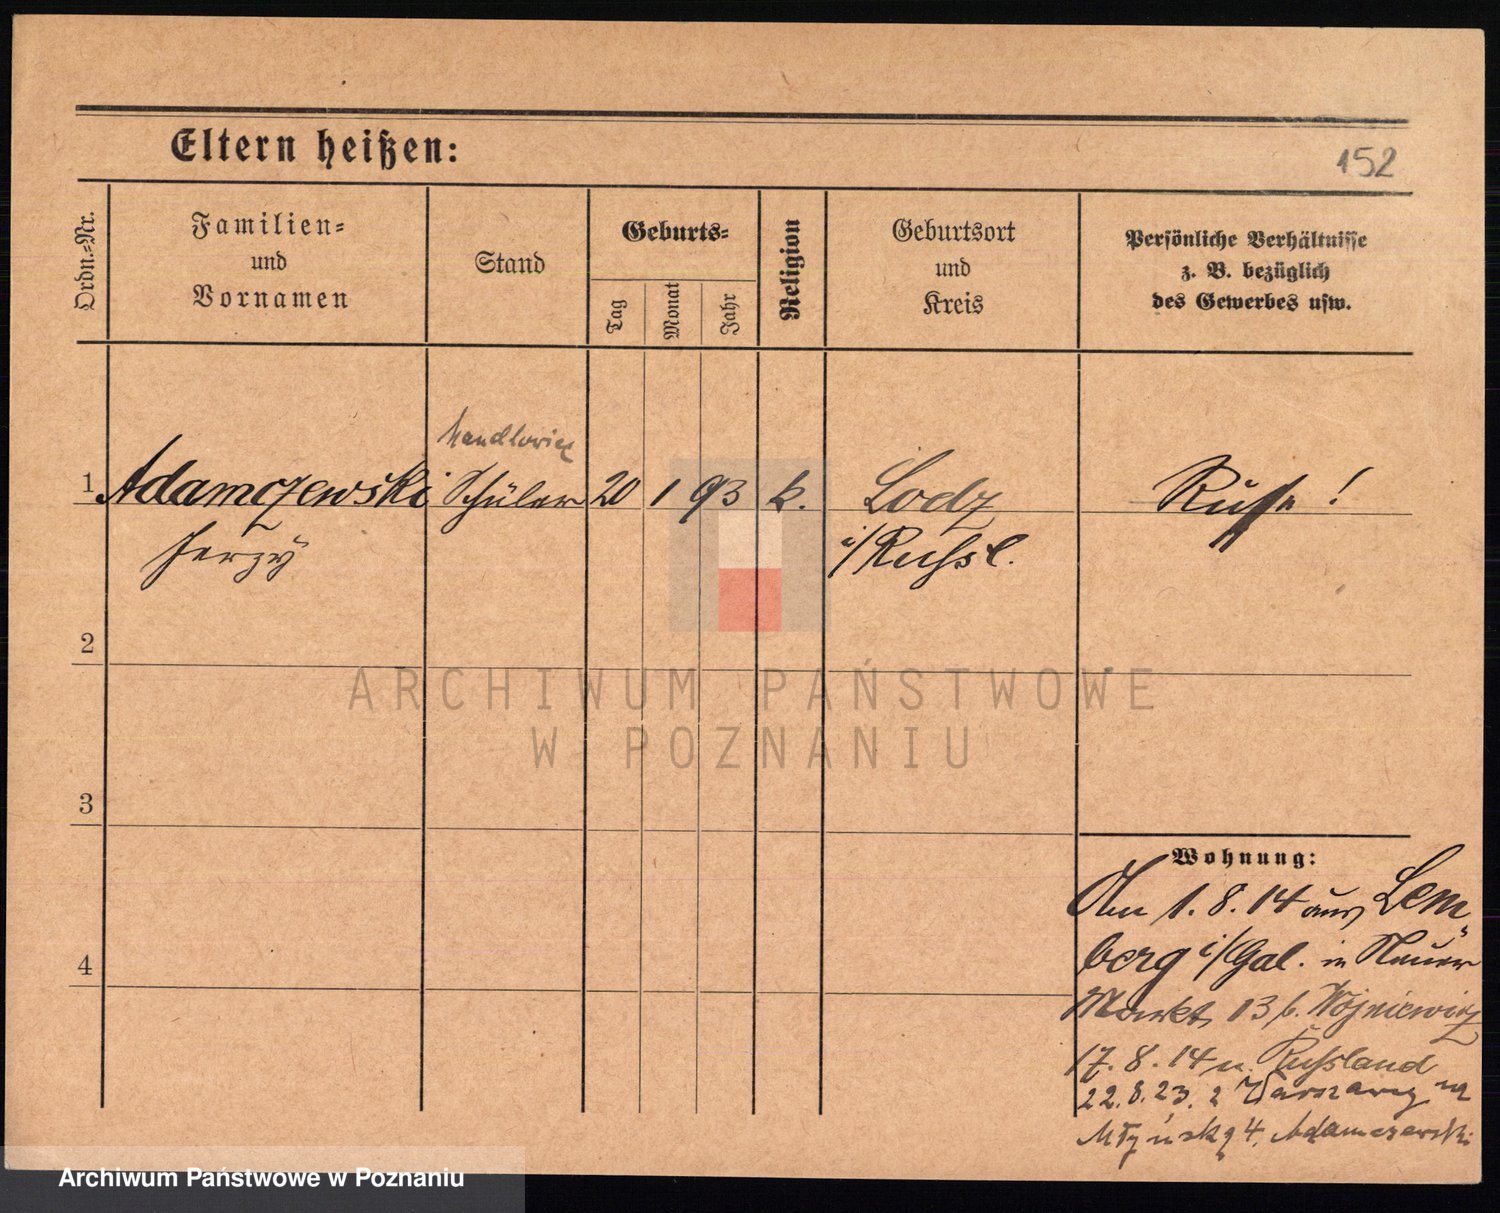 Eltern heißen:
152
Ordn.-Nr.
Familien-
und
Vornamen
Stand
Geburts-
Tag
Monat
Jahr
Religion
Geburtsort
und
Kreis
Persönliche Verhältnisse
z. B. bezüglich
des Gewerbes usw.
handlowiec
1 Adamczewski Schüler 20 1 93 k. Lodz Russe !
Jerzy i/Russl.
2
3
4
ARCHIWUM PAŃSTWOWE
W POZNANIU
Wohnung:
Am 1. 8. 14 aus Lem
berg i/Gal. in Neuer
Markt 13 b. Wojniewicz
17. 8. 14 n. Russland
22. 8. 23. z Warszawy na
Młyńską 4. Adamczewski
Archiwum Państwowe w Poznaniu